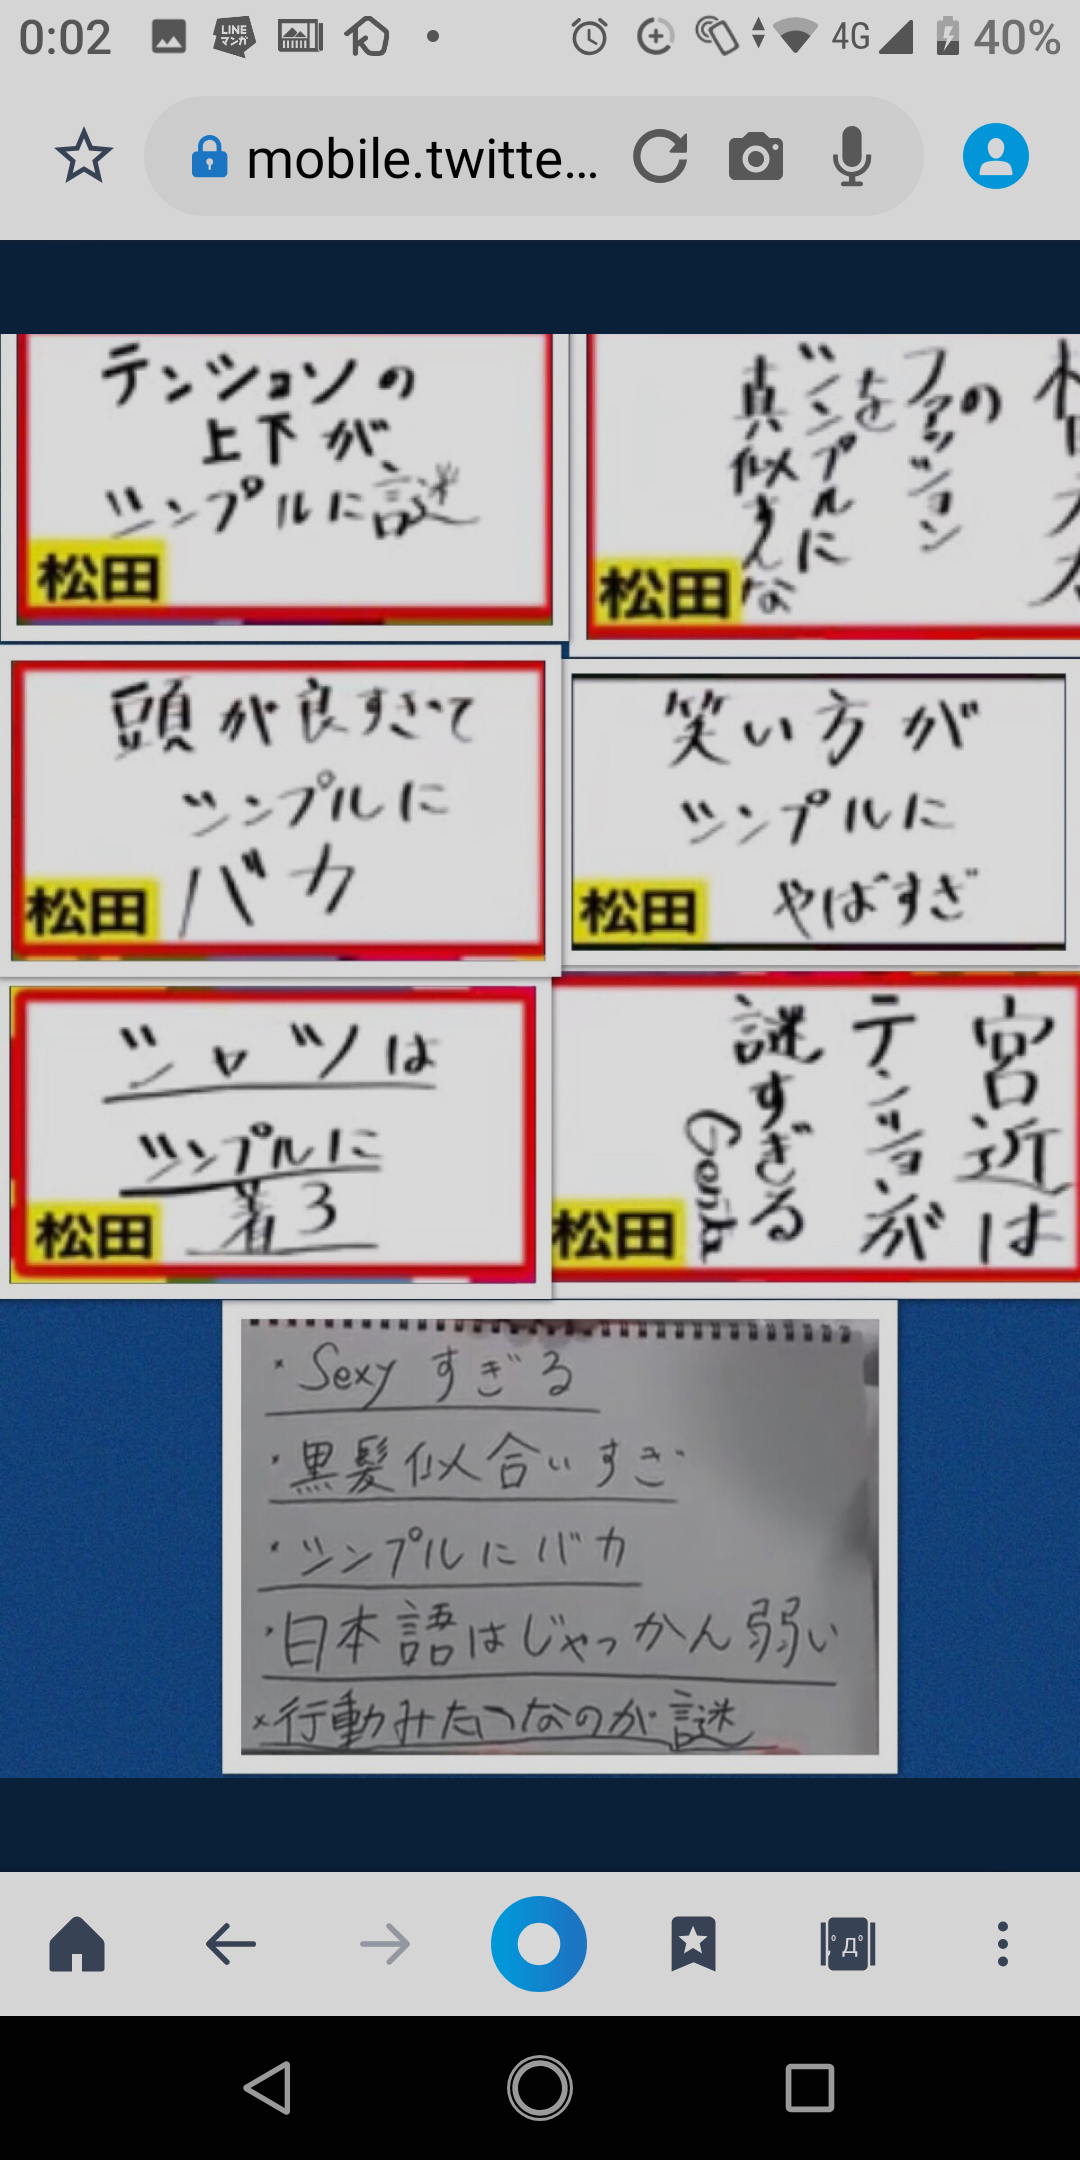 0:02
LINE
マンガ
4G
40%
mobile.twitte...
テンションの
上下が
シンプルに謎
松田
の
ファッション
を
シンプルに
真似すんな
松田
頭が良すぎて
シンプルに
バカ
松田
笑い方が
シンプルに
やばすぎ
松田
シャツは
シンプルに
着る
松田
宮近は
テンションが
謎すぎる
Genta
松田
・Sexyすぎる
・黒髪似合いすぎ
・シンプルにバカ
・日本語はじゃっかん弱い
×行動みたつなのが謎